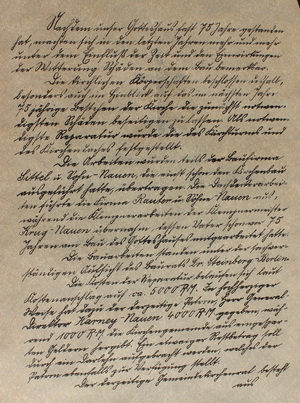 Nachdem unser Gotteshaus fast 75 Jahre gestanden
hat, machten sich in den letzten Jahren mehr und mehr
unter dem Einfluß der Zeit und den Einwirkungen
der Witterung Schäden an dem Bau bemerkbar.
Die kirchlichen Körperschaften beschlossen deshalb,
besonders auch im Hinblick auf das im nächsten Jahre
75 jährige Bestehen der Kirche die zunächst notwen-
digsten Schäden beseitigen zu lassen. Als notwen-
digste Reparatur wurde die des Kirchturms und
des Kirchendaches festgestellt.
Die Arbeiten wurden teils der Baufirma
Sittel u. Sohn-Nauen, die einst schon den Kirchenbau
ausgeführt hatte, übertragen. Die Dachdeckerarbei-
ten führte die Firma u. Sohn-Nauen aus,
während die Klempnerarbeiten der Klempnermeister
Krug-Nauen übernahm, dessen Vater schon vor 75
Jahren am Bau des Gotteshauses mitgearbeitet hatte.
Die Bauarbeiten standen unter der sachver-
ständigen Aufsicht des Baurats Dr. Steinberg Berlin.
Die Kosten der Reparatur belaufen sich laut
Kostenanschlag auf ca. 5000 RM. In hochherziger
Weise hat dazu der derzeitige Patron, Herr General-
Direktor Nauen 4000 RM gegeben, wäh-
rend 1000 RM die Kirchengemeinde aus eingespar-
ten Geldern hergibt. Ein etwaiger Restbetrag soll
durch ein Darlehn aufgebracht werden, welches der
Patron ebenfalls zur Verfügung stellt.
Der derzeitige Gemeindekirchenrat besteht
aus